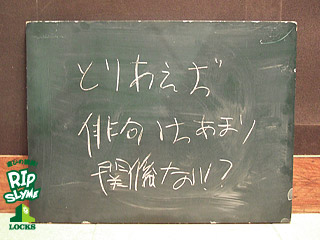 とりあえず
俳句はあまり
関係ない!?
RIP
SLYME
LOCKS